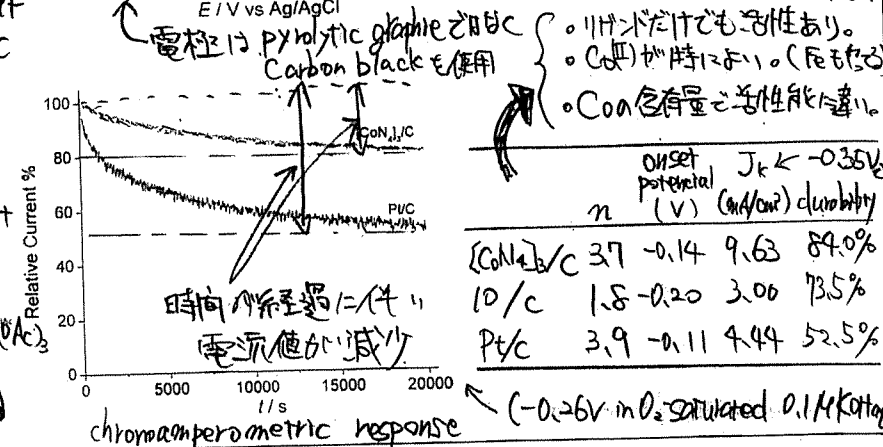 E / V vs Ag/AgCl
電極は pyrolytic graphieではなく
Carbon blackを使用
・リガンドだけでも活性あり。
・Co(II)が特によい。(Feもやってる
・Coの含有量で活性能に違い。
Relative Current %
100
80
60
40
20
0
[CoN4]3/C
Pt/C
時間が経過に伴い
電流値が減少
0 5000 10000 15000 20000
t / s
chronoamperometric response
n onset potencial (V) Jk ← -0.35V (mA/cm²) durability
[CoN4]3/C 3.7 -0.14 9.63 84.0%
10/C 1.8 -0.20 3.00 73.5%
Pt/C 3.9 -0.11 4.44 52.5%
(-0.26V in O2-saturated 0.1M KOHaq
OAc)3